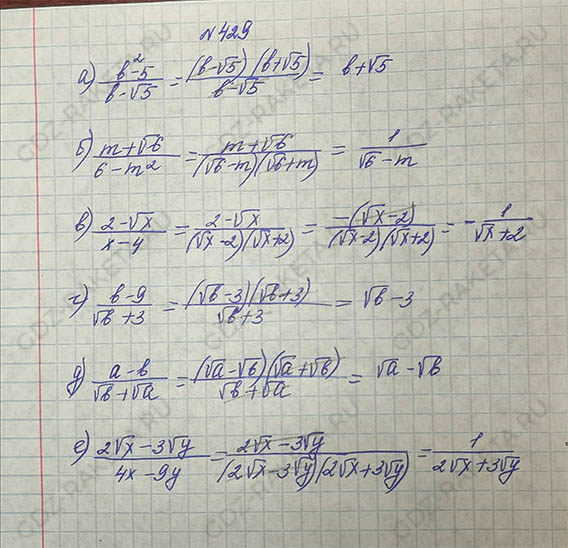 №429
а) (b²-5)/(b-√5) = ((b-√5)(b+√5))/(b-√5) = b+√5
б) (m+√6)/(6-m²) = (m+√6)/((√6-m)(√6+m)) = 1/(√6-m)
в) (2-√x)/(x-4) = (2-√x)/((√x-2)(√x+2)) = (-(√x-2))/((√x-2)(√x+2)) = -1/(√x+2)
г) (b-9)/(√b+3) = ((√b-3)(√b+3))/(√b+3) = √b-3
д) (a-b)/(√b+√a) = ((√a-√b)(√a+√b))/(√b+√a) = √a-√b
е) (2√x-3√y)/(4x-9y) = (2√x-3√y)/((2√x-3√y)(2√x+3√y)) = 1/(2√x+3√y)
GDZ-RAKETA.RU